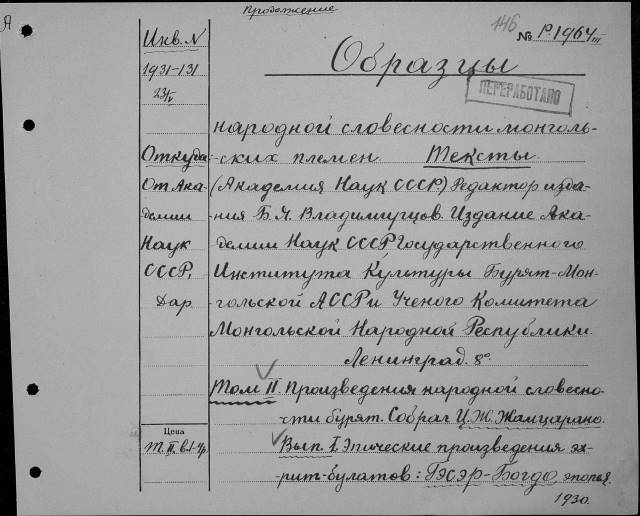 Продолжение
Я
146
№ Р1964 III
Инв. N
1931-131
23/IV
Образцы
ПЕРЕРАБОТАНО
народной словесности монголь-
ских племен. Тексты.
(Академия Наук СССР.) Редактор изда-
ния Б. Я. Владимирцов. Издание Ака-
демии Наук СССР Государственного
Института Культуры Бурят-Мон-
гольской АССР и Ученого Комитета
Монгольской Народной Республики.
Ленинград. 8°.
Том II. Произведения народной словесно-
сти бурят. Собрал Ц. Ж. Жамцарано.
Вып. I. Эпические произведения эх-
рит-булатов: Гэсэр-Богдо, эпопея.
1930.
Откуда:
От Ака-
демии
Наук
СССР,
Дар.
Цена
Т. II, в. 1-